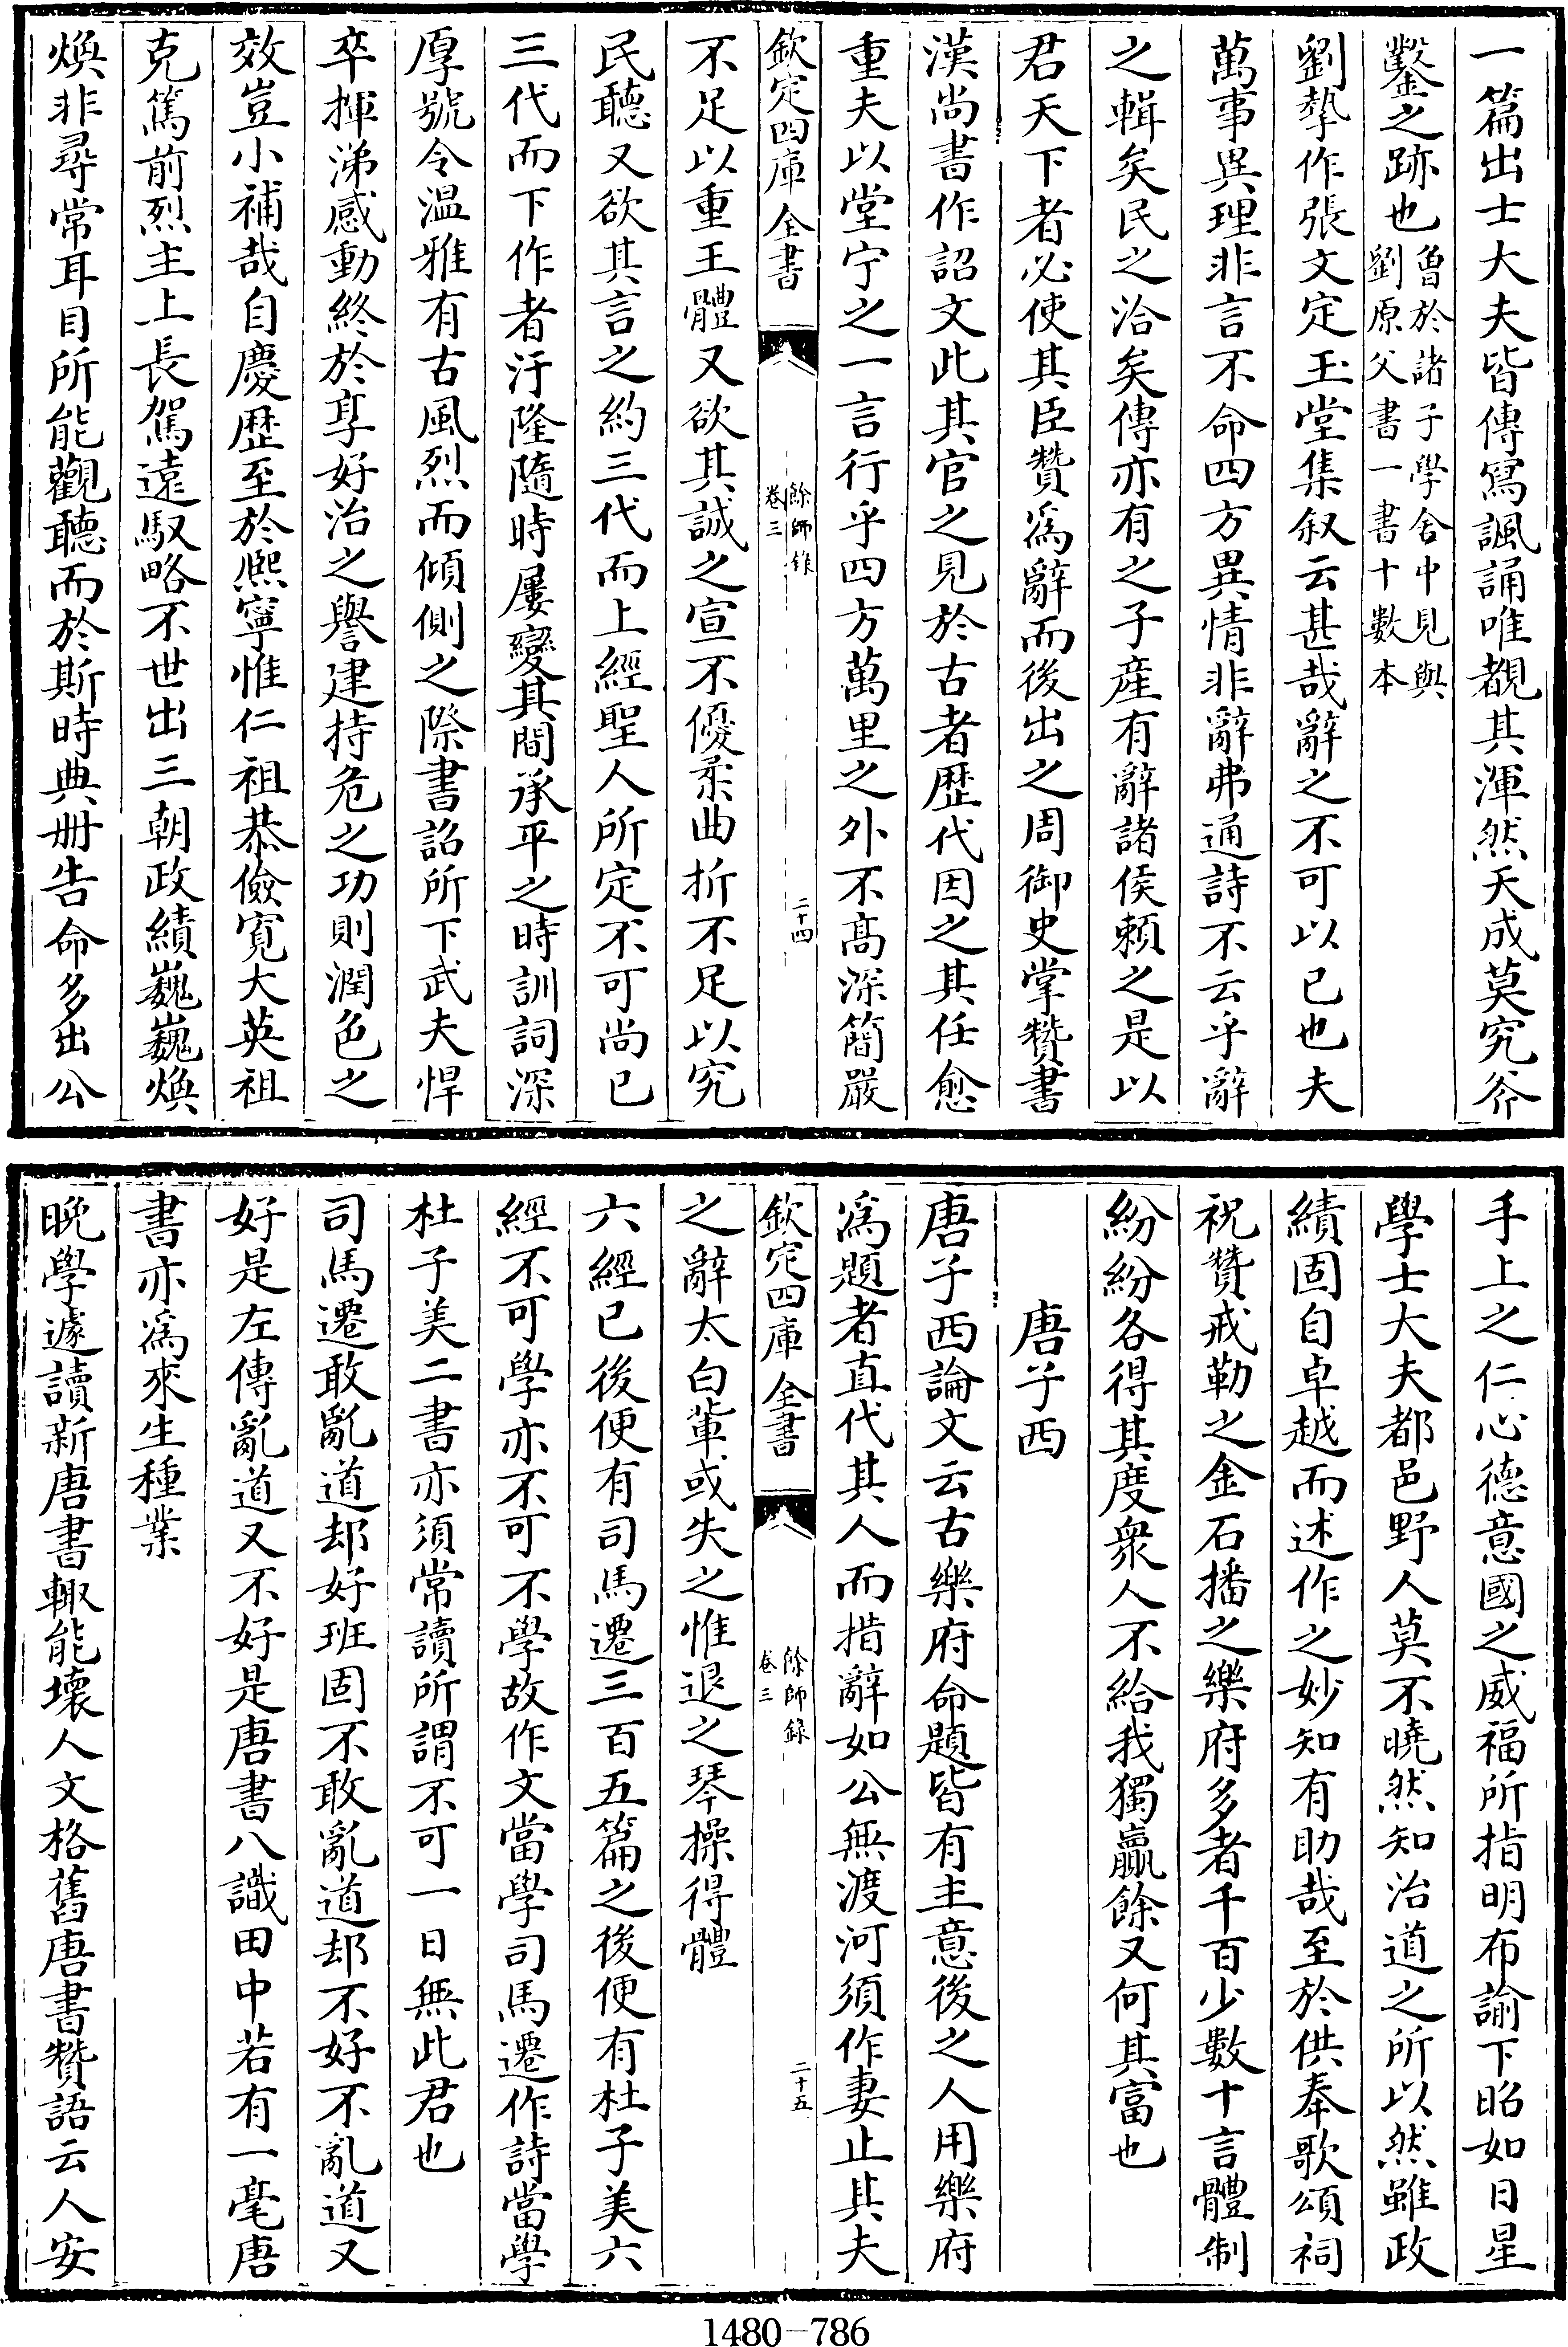 一篇出士大夫皆傳寫諷誦唯覩其渾然天成莫究斧
鑿之跡也魯於諸子學舍中見與
劉原父書一書十數本
劉摯作張文定玉堂集叙云甚哉辭之不可以已也夫
萬事異理非言不命四方異情非辭弗通詩不云乎辭
之輯矣民之洽矣傳亦有之子產有辭諸侯賴之是以
君天下者必使其臣贊爲辭而後出之周御史掌贊書
漢尚書作詔文此其官之見於古者歴代因之其任愈
重夫以堂宁之一言行乎四方萬里之外不髙深簡嚴
欽定四庫全書
餘師錄
卷三
二十四
不足以重王體又欲其誠之宣不優柔曲折不足以究
民聽又欲其言之約三代而上經聖人所定不可尚已
三代而下作者汙隆隨時屢變其間承平之時訓詞深
厚號令温雅有古風烈而傾側之際書詔所下武夫悍
卒揮涕感動終於享好治之譽建持危之功則潤色之
效豈小補哉自慶歴至於熈寧惟仁祖恭儉寛大英祖
克篤前烈主上長駕遠馭略不世出三朝政績巍巍煥
煥非尋常耳目所能觀聽而於斯時典册告命多出公
手上之仁心德意國之威福所指明布諭下昭如日星
學士大夫都邑野人莫不曉然知治道之所以然雖政
績固自卓越而述作之妙知有助哉至於供奉歌頌祠
祝贊戒勒之金石播之樂府多者千百少數十言體制
紛紛各得其度衆人不給我獨贏餘又何其富也
唐子西
唐子西論文云古樂府命題皆有主意後之人用樂府
爲題者直代其人而措辭如公無渡河須作妻止其夫
欽定四庫全書
餘師錄
卷三
二十五
之辭太白輩或失之惟退之琴操得體
六經已後便有司馬遷三百五篇之後便有杜子美六
經不可學亦不可不學故作文當學司馬遷作詩當學
杜子美二書亦須常讀所謂不可一日無此君也
司馬遷敢亂道却好班固不敢亂道却不好不亂道又
好是左傳亂道又不好是唐書八識田中若有一毫唐
書亦爲來生種業
晚學遽讀新唐書輙能壞人文格舊唐書贊語云人安
1480—786